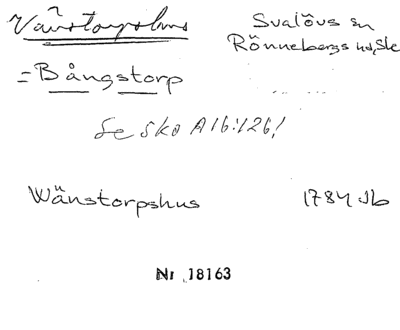 Vänstorpshus Svalövs sn
Rönnebergs hd, Sk
= Bångstorp
Se Sko A 16:126!
Wänstorpshus 1784 Jb
Nr 18163